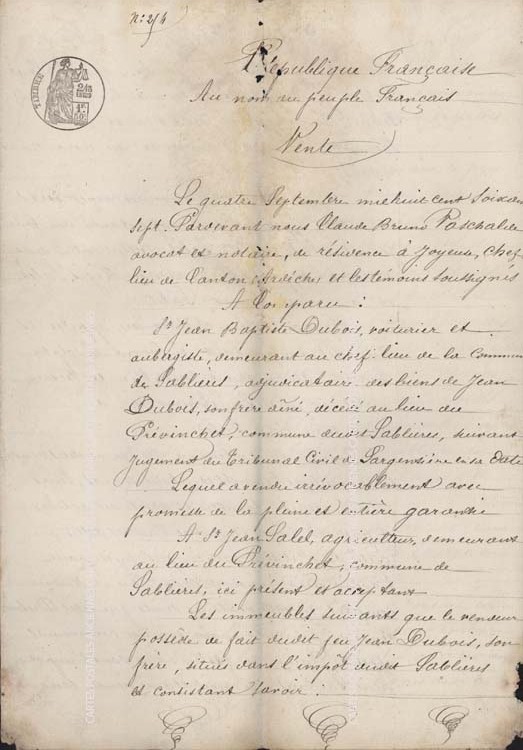 N° 214
République Française
Au nom du peuple Français
Vente
TIMBRE
Le quatre Septembre mil huit cent Soixan
sept. Pardevant nous Claude Bruno Paschal de
avocat et notaire, de résidence à Joyeuse, chef
lieu de Canton (Ardèche) et les témoins soussignés
A Comparu :
Sr Jean Baptiste Dubois, voiturier et
aubergiste, demeurant au chef-lieu de la Commune
de Sablières, adjudicataire des biens de Jean
Dubois, son frère aîné, décédé au lieu du
Prévinchet, commune dudit Sablières, suivant
Jugement du Tribunal Civil de Largentière en sa date
Lequel a vendu irrévocablement avec
promesse de la pleine et entière garantie
A Sr Jean Salel, agriculteur, demeurant
au lieu du Prévinchet, commune de
Sablières, ici présent et acceptant
Les immeubles suivants que le vendeur
possède de fait dudit feu Jean Dubois, son
frère, situés dans l'impôt dudit Sablières
et consistant savoir :